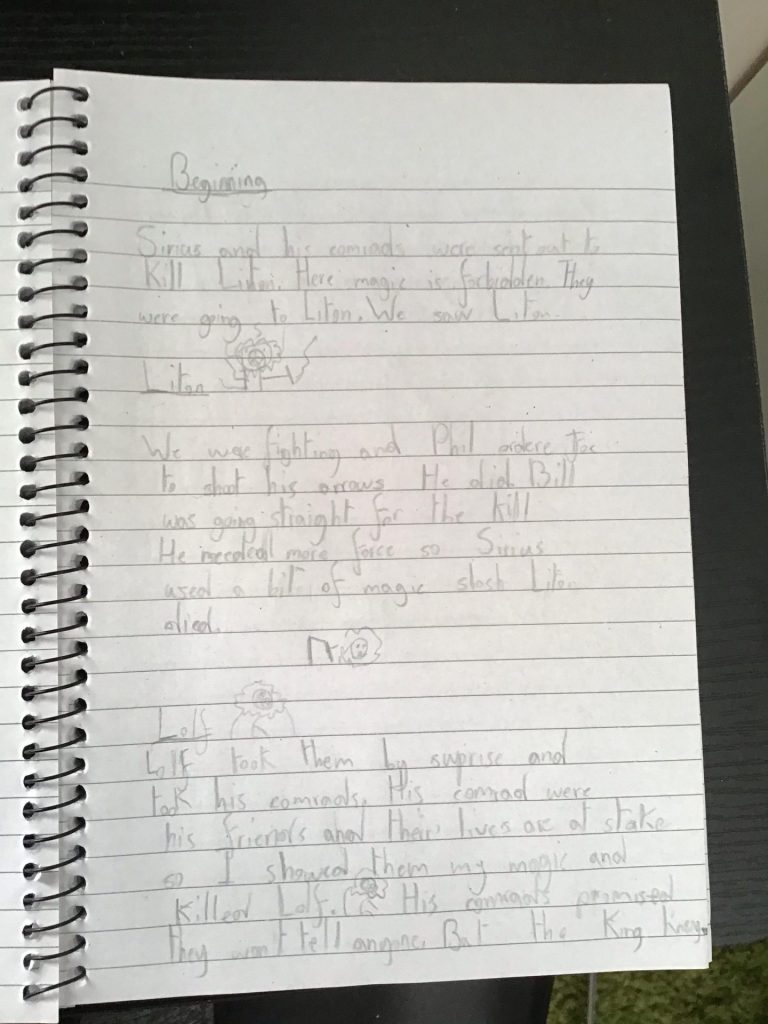 Beginning
Sirius and his comrads were sent out to
kill Liton. Here magic is forbidden. They
were going to Liton. We saw Liton.
Liton
We were fighting and Phil ordere
to shoot his arrows. He did. Bill
was going straight for the kill
He needed more force so Sirius
used a bit of magic slash Liton
died.
Lolf
Lolf took them by suprise and
took his comrads. His comrad were
his friends and their lives are at stake
so I showed them my magic and
killed Lolf. His comrads promised
they won't tell angone. But the King